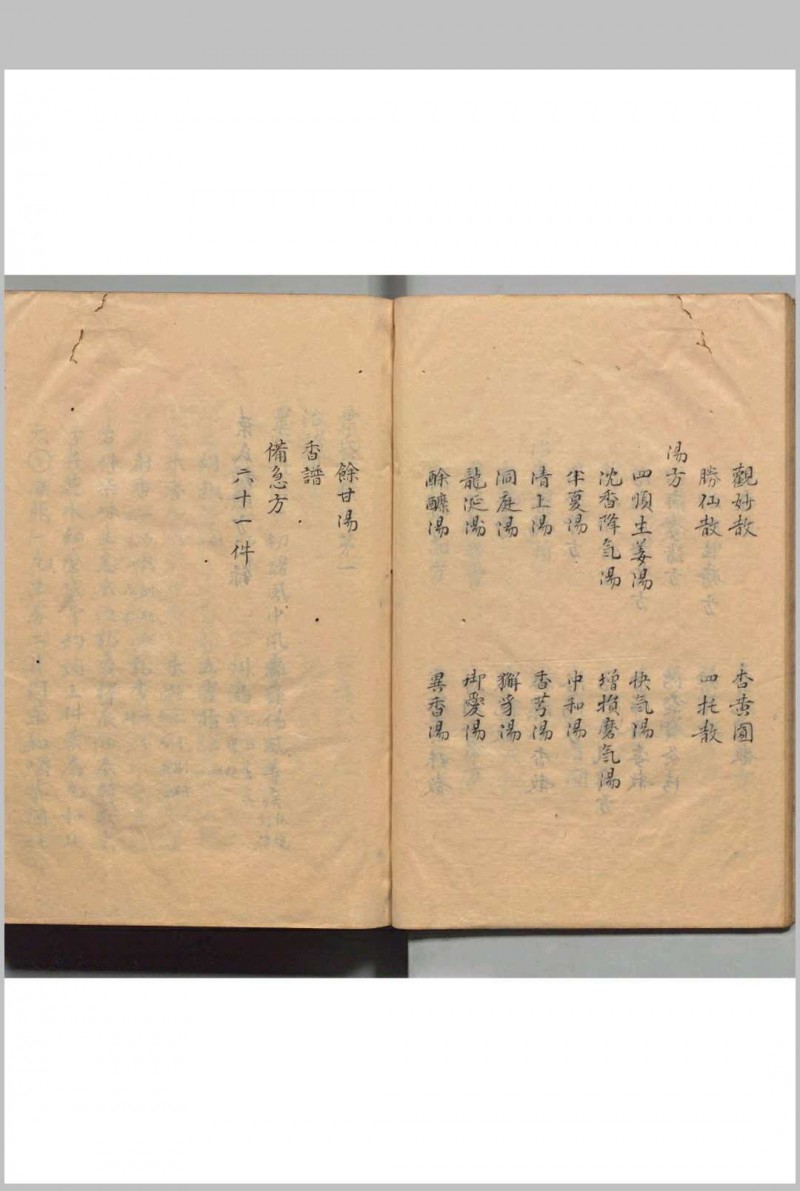 觀妙散 杏黄圓
勝仙散 四托散
湯方
四順生姜湯 快氣湯
沈香降氣湯 增損磨氣湯
半夏湯 中和湯
清上湯 香芎湯
洞庭湯 獬豸湯
龍涎湯 御愛湯
酴醾湯 異香湯
餘甘湯
香譜
備急方
六十一件